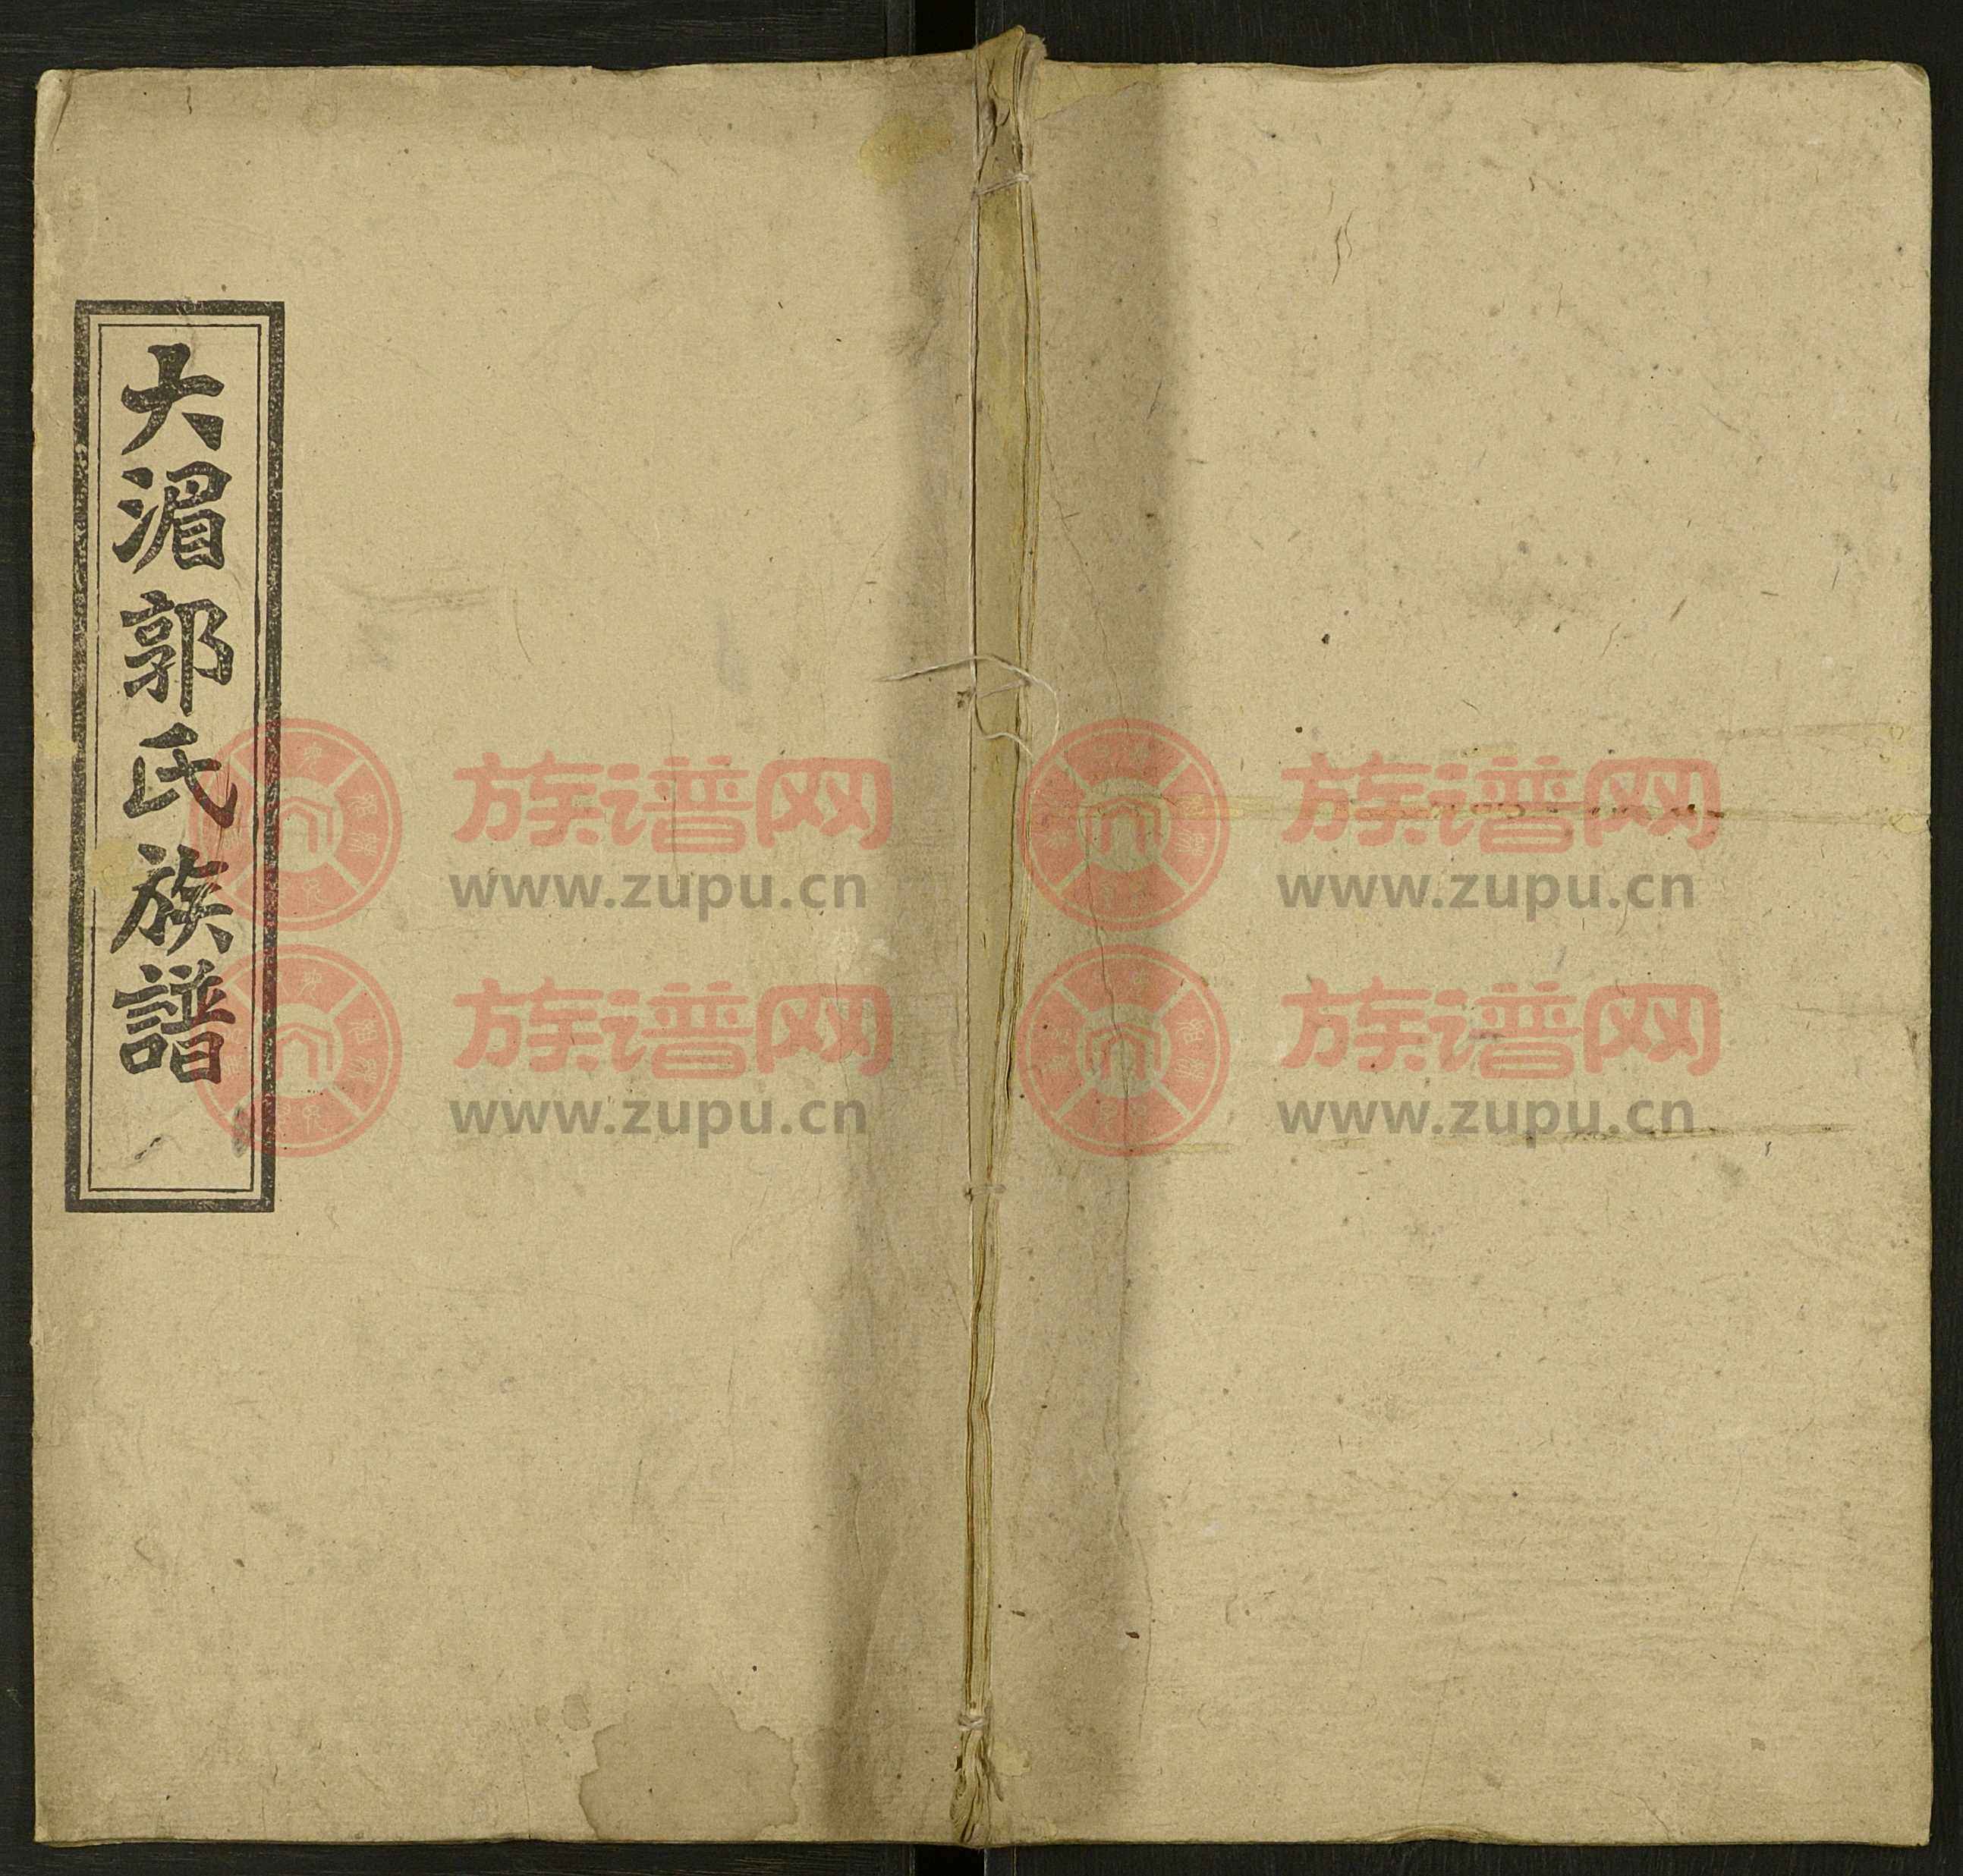 大湄郭氏族譜
族谱网
www.zupu.cn
族谱网
www.zupu.cn
族谱网
www.zupu.cn
族谱网
www.zupu.cn